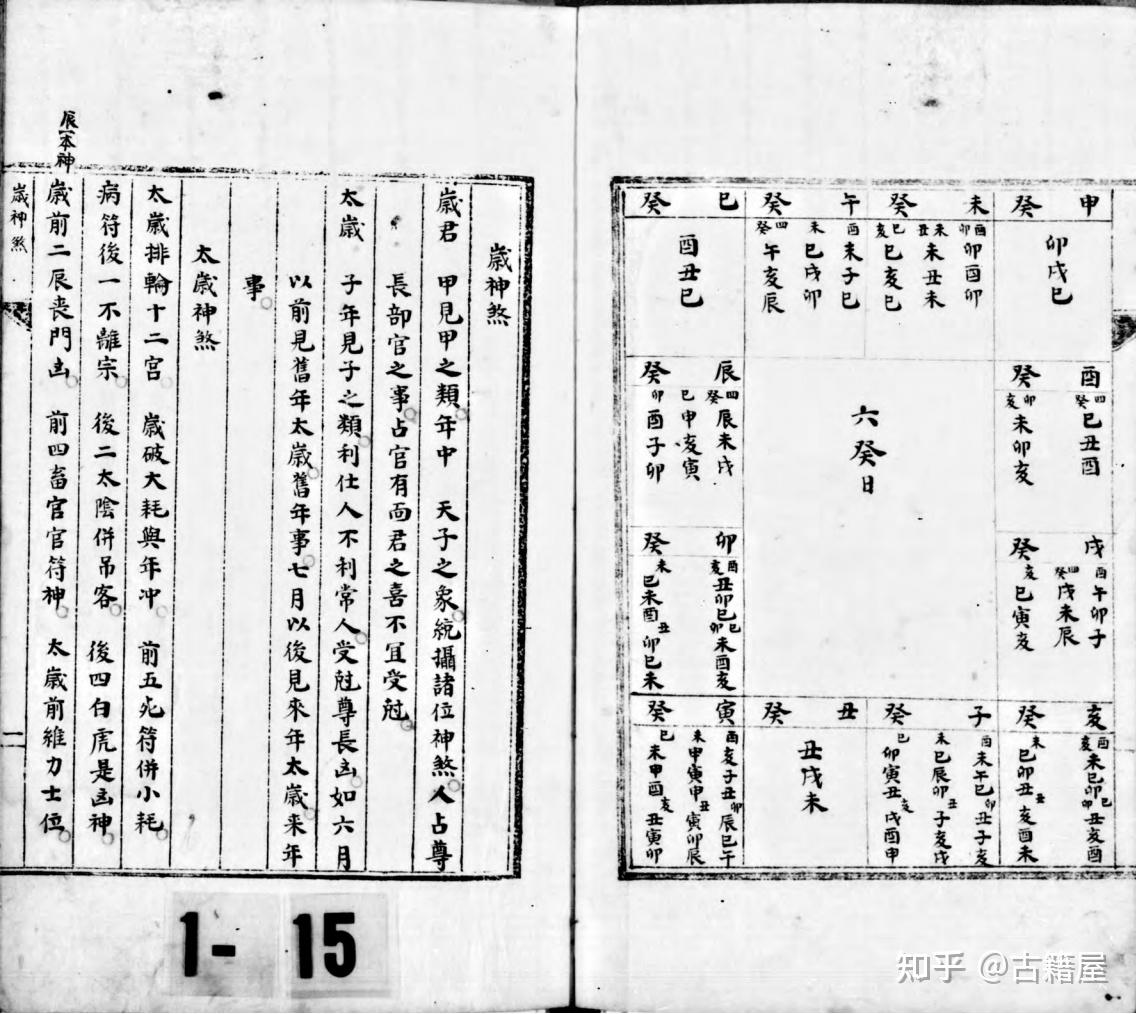 癸申
卯戌巳
癸未
酉卯卯酉卯
未丑未丑未
巳亥巳亥巳
癸午
酉未子巳
未巳戌卯
四癸午亥辰
癸巳
酉丑巳
癸酉
四癸巳丑酉
卯亥未卯亥
六癸日
癸辰
四癸辰未戌
巳申亥寅
卯酉子卯
癸戌
酉午卯子
四癸戌未辰
亥巳寅亥
癸卯
酉亥丑卯巳巳卯未酉亥
未巳未酉丑卯巳未
癸亥
酉亥未巳卯巳卯丑亥酉
未巳卯丑丑亥酉未
癸子
酉未午巳卯丑子亥
未巳辰卯丑子亥戌
巳卯寅丑亥戌酉申
癸丑
丑戌未
癸寅
酉亥子丑卯辰巳午
未申寅申丑寅卯辰
巳未申酉亥丑寅卯
歲神煞
歲君 甲見甲之類年中 天子之象統攝諸位神煞人占尊
長部官之事占官有面君之喜不宜受尅
太歲 子年見子之類利仕人不利常人受尅尊長凶如六月
以前見舊年太歲舊年事七月以後見來年太歲来年
事
太歲神煞
太歲排輪十二宮 歲破大耗與年冲 前五死符併小耗
病符後一不離宗 後二太陰併吊客 後四白虎是凶神
辰一本神
歲前二辰喪門凶 前四畜官官符神 太歲前維力士位
歲神煞
二
1- 15
知乎 @古籍屋